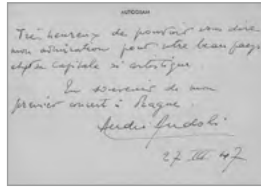 Très heureux de pouvoir vous dire
mon admiration pour votre beau pays
et capitale si artistique.
En souvenir de mon
premier concert à Prague.
27 III 47